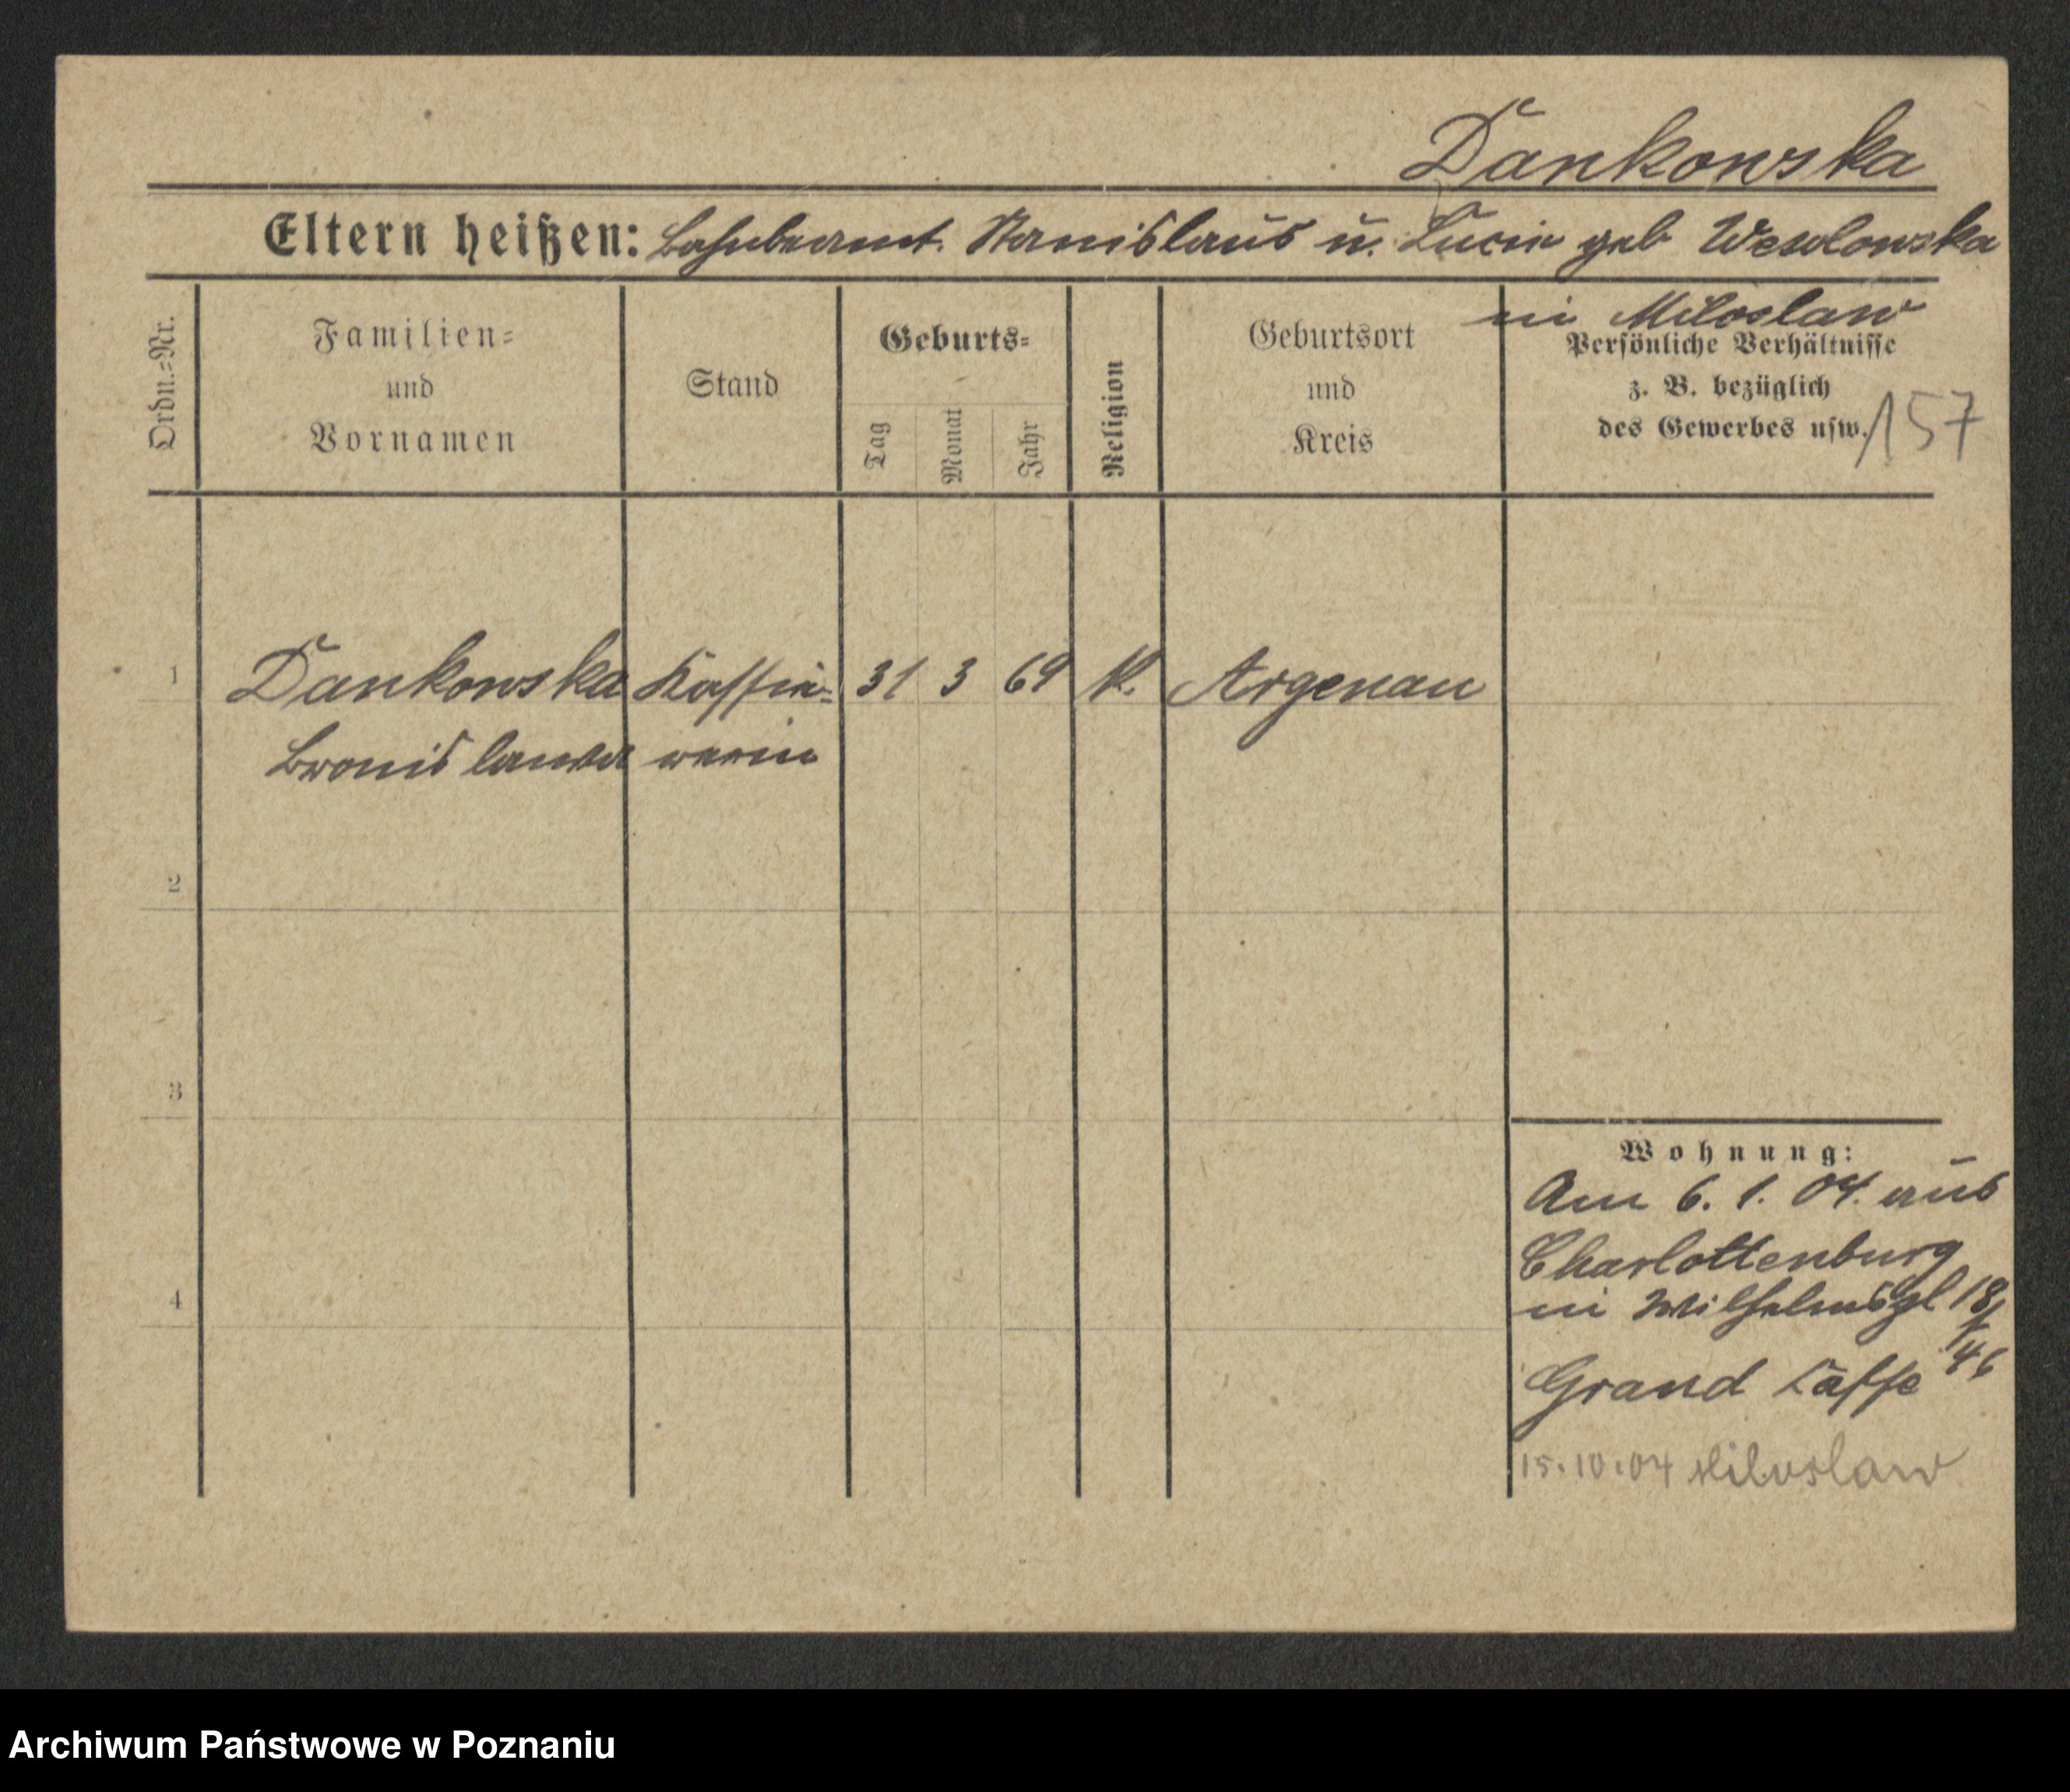 Dankowska
Eltern heißen: Bahnbeamt. Stanislaus u. Lucie geb Wesolowska
in Miloslaw
Ordn.=Nr.
Familien=
und
Vornamen
Stand
Geburts=
Tag
Monat
Jahr
Religion
Geburtsort
und
Kreis
Persönliche Verhältnisse
z. B. bezüglich
des Gewerbes usw.
157
1 Dankowska Kassie= 31 3 69 K. Argenau
Bronislawa rerin
2
3
4
Wohnung:
Am 6. 1. 04. aus
Charlottenburg
in Wilhelmspl 18/
Grand Caffe
15.10.04 Miloslaw
Archiwum Państwowe w Poznaniu